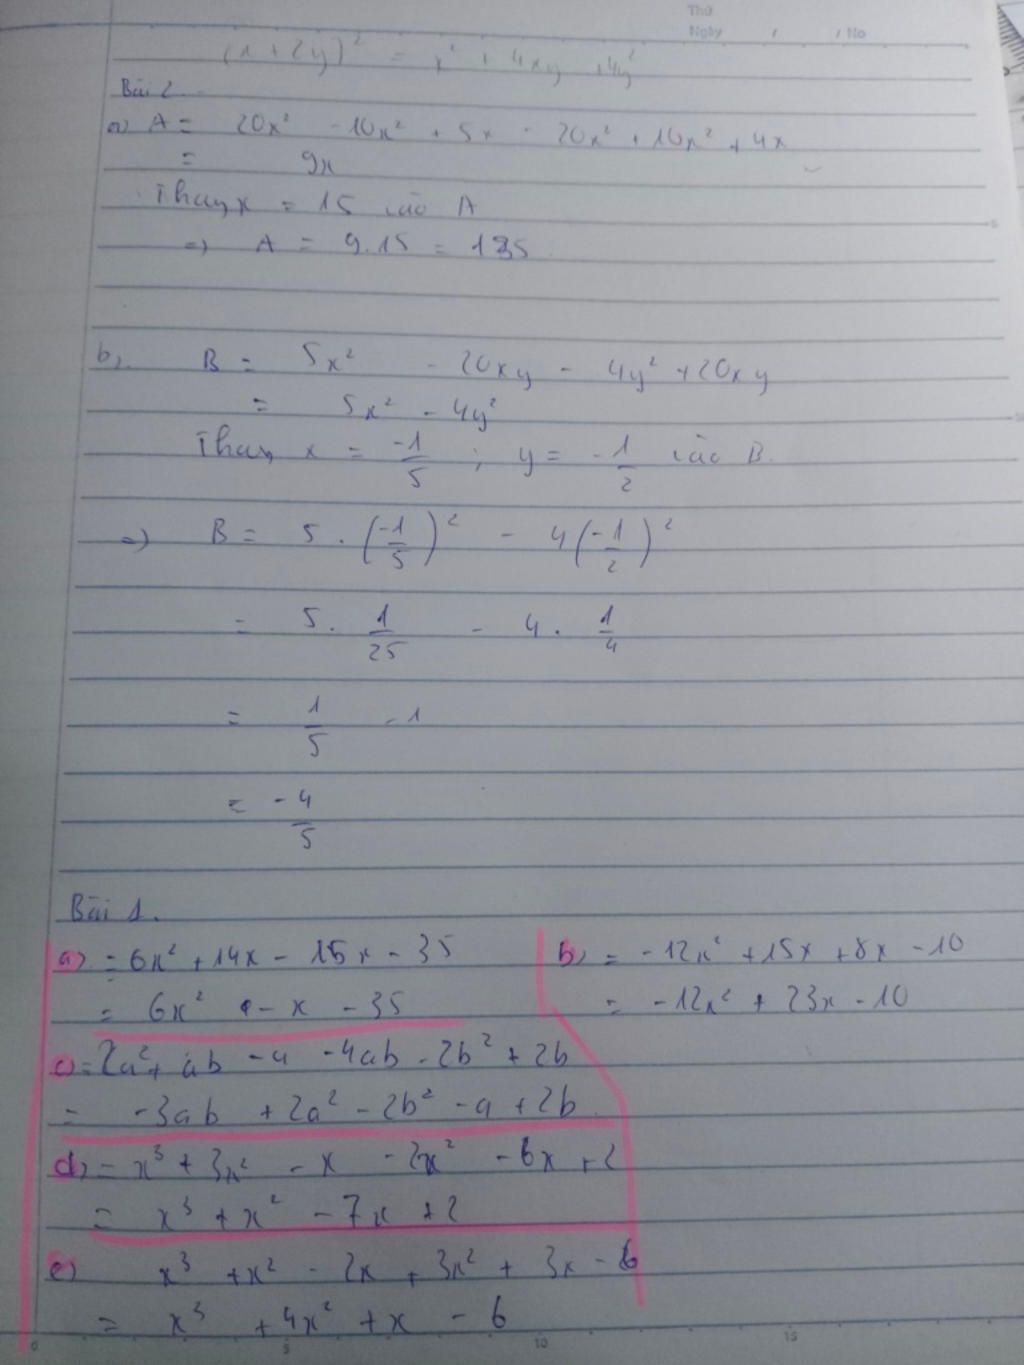 Thứ
Ngày / / No
(x + 2y)² = x² + 4xy + 4y²
Bài 2.
a) A = 20x² - 10x² + 5x - 20x² + 10x² + 4x
= 9x
Thay x = 15 vào A
=> A = 9.15 = 135
b) B = 5x² - 20xy - 4y² + 20xy
= 5x² - 4y²
Thay x = -1/5 ; y = -1/2 vào B.
=> B = 5 . (-1/5)² - 4(-1/2)²
= 5 . 1/25 - 4 . 1/4
= 1/5 - 1
= -4/5
Bài 1.
a) = 6x² + 14x - 15x - 35
= 6x² - x - 35
b) = -12x² + 15x + 8x - 10
= -12x² + 23x - 10
c) = 2a² + ab - a - 4ab - 2b² + 2b
= -3ab + 2a² - 2b² - a + 2b
d) = x³ + 3x² - x - 2x² - 6x + 2
= x³ + x² - 7x + 2
e) x³ + x² - 2x + 3x² + 3x - 6
= x³ + 4x² + x - 6
0 5 10 15